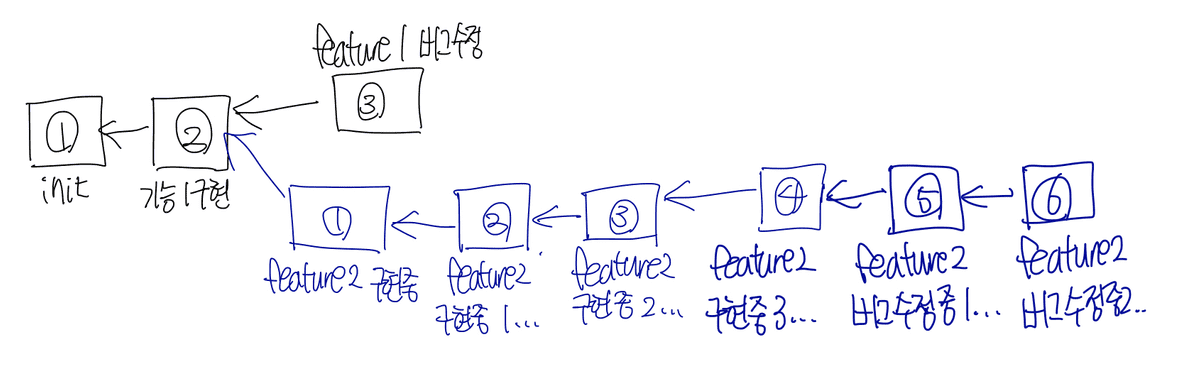 feature1 버그수정
① ② ③
init
기능1구현
① ② ③ ④ ⑤ ⑥
feature2 구현중
feature2
구현중 1...
feature2
구현중 2...
feature2
구현중 3...
feature2
버그수정중1...
feature2
버그수정중2..